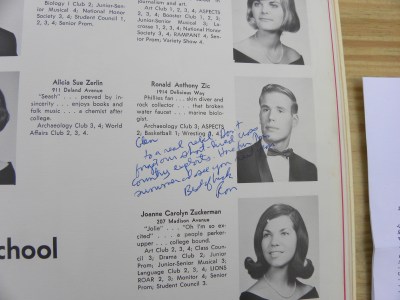 Biology 1, 3; Junior-Senior
Musical 4; National Honor
Society 4; Student Council 1,
2, 3, 4, Senior Prom.
journalism and art.
Art Club 1, 2, 3, 4, ASPECTS
2, 3, 4; Booster Club 1, 2, 3;
Junior-Senior Musical 3; Lacrosse
1, 2, 3, 4, National Honor
Society 3, 4; RAMPANT 4; Senior
Prom; Variety Show 4.
Alicia Sue Zerlin
911 Deland Avenue
"Seash" . . . peeved by insincerity
. . . enjoys books and
folk music . . . a chemist after
college.
Archaeology Club 3, 4; World
Affairs Club 2, 3, 4.
Ronald Anthony Zic
1914 Delicious Way
Phillies fan . . . skin diver and
rock collector . . . that broken
water faucet . . . marine biologist.
Archaeology Club 3; ASPECTS
2; Basketball 1; Wrestling
Glen
to a real rebel. Don't
forget our short-lived cross
country exploits. Have fun this
summer & see you
Best of luck
Ron
Joanne Carolyn Zuckerman
207 Madison Avenue
"Jolie" . . . "Oh I'm so excited"
. . . a people perker-upper
. . . college bound.
Art Club 2, 3, 4; Class Council
3; Drama Club 2; Junior
Prom; Junior-Senior Musical 3;
Language Club 2, 3, 4, LIONS
ROAR 2, 3; Monitor 4; Senior
Prom; Student Council 3.
School